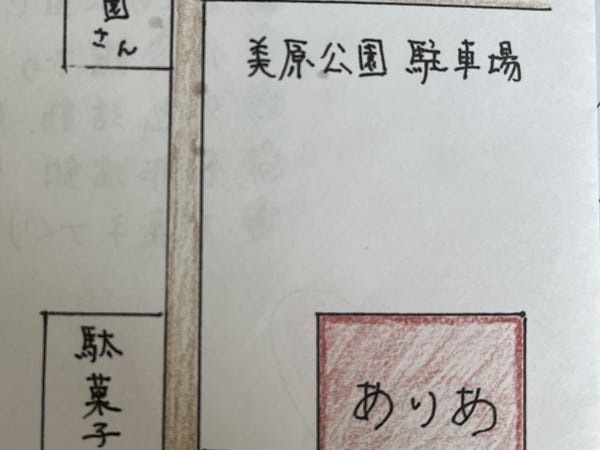 園さん
美原公園 駐車場
駄菓子
ありあ